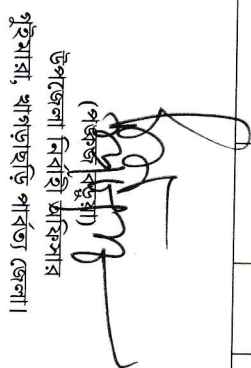 (পঙ্কজ বড়ুয়া)
উপজেলা নির্বাহী অফিসার
গুইমারা, খাগড়াছড়ি পার্বত্য জেলা।